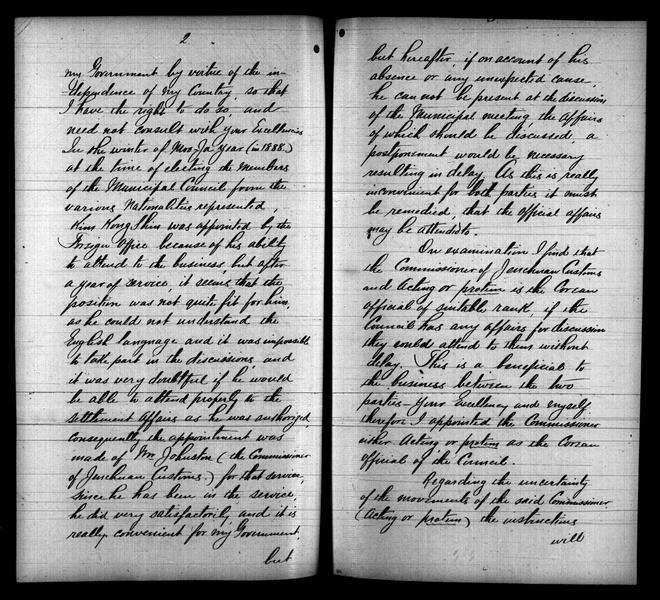 2
my Government by virtue of the in-
dependence of my Country, so that
I have the right to do so, and
need not consult with your Excellencies
In the winter of Moo-Ja year (in 1888.)
at the time of electing the members
of the Municipal Council from the
various Nationalities represented,
Kim Kong Shim was appointed by the
Foreign Office because of his ability
to attend to the business, but after
a year of service, it seems that the
position was not quite fit for him,
as he could not understand the
English language and it was impossible
to take part in the discussions, and
it was very doubtful if he would
be able to attend properly to the
settlement affairs as he was authorized
consequently the appointment was
made of Mr Johnston (the Commissioner
of Jenchuan Customs.) for that service,
since he has been in the service,
he did very satisfactorily and it is
really convenient for my Government,
but
but hereafter, if on account of his
absence or any unexpected cause,
he can not be present at the discussion
of the Municipal meeting the affairs
of which should be discussed, a
postponement would be necessary
resulting in delay. As this is really
inconvenient for both parties it must
be remedied, that the official affairs
may be attended to.
On examination I find that
the Commissioner of Jenchuan Customs
and Acting or protem is the Corean
official of suitable rank, if the
Council has any affairs for discussion
they could attend to them without
delay. This is a beneficial to
the business between the two
parties - your Excellency and myself
therefore I appointed the Commissioner
either Acting or protem as the Corean
official of the Council.
Regarding the uncertainty
of the movements of the said Commissioner
(Acting or protem) the instructions
will